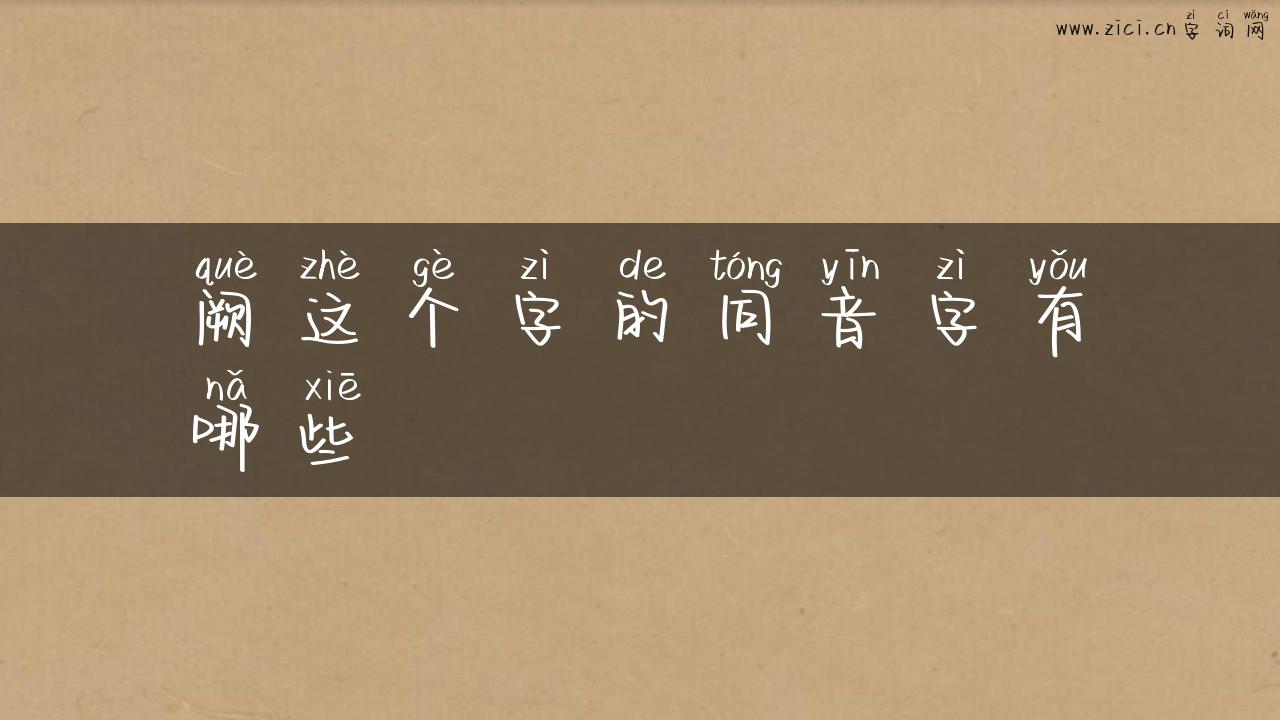 zì cí wǎng
www.zici.cn字词网
què zhè gè zì de tóng yīn zì yǒu
阙这个字的同音字有
nǎ xiē
哪些